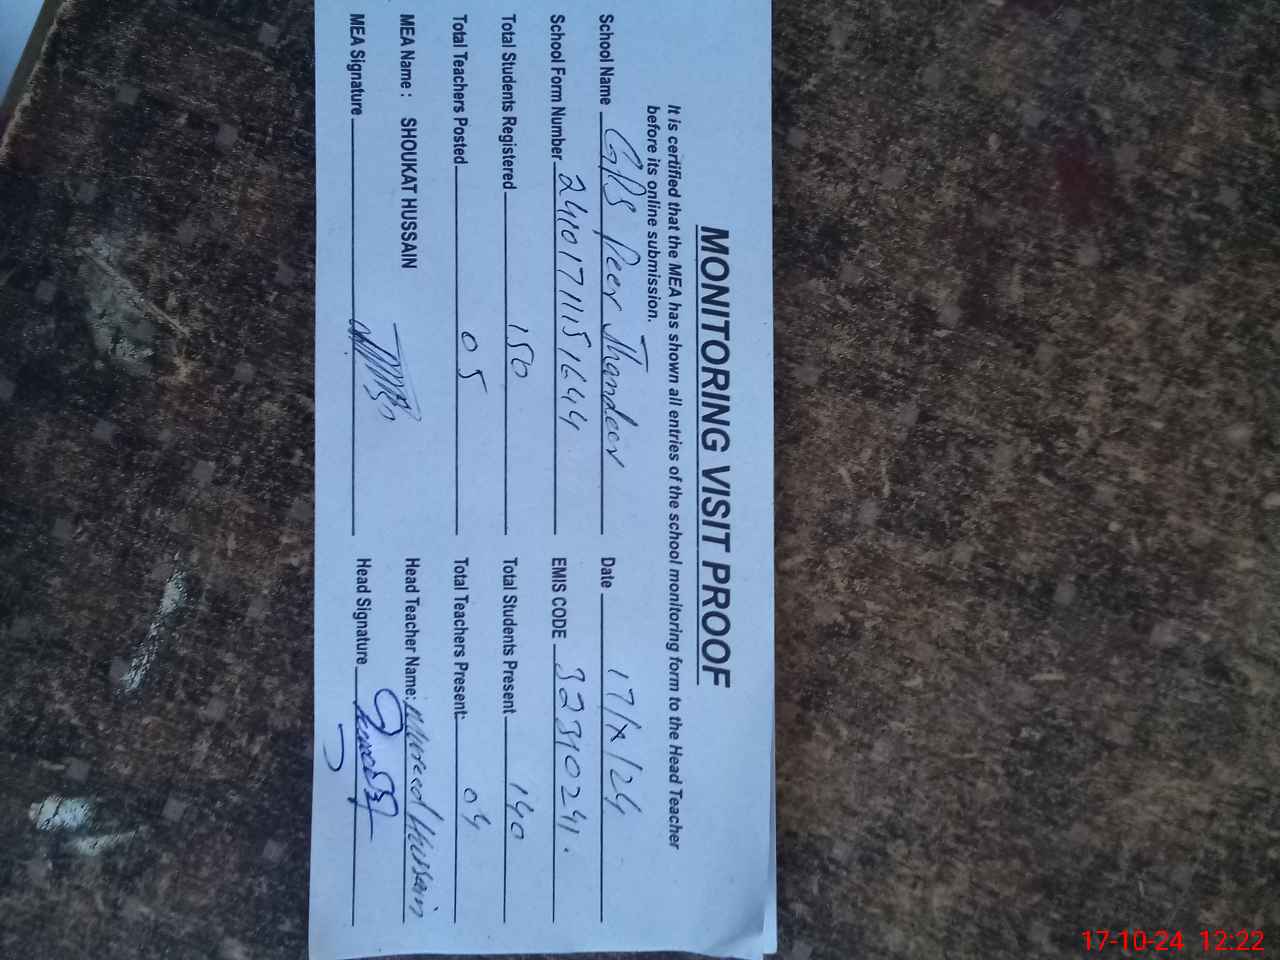 MONITORING VISIT PROOF
It is certified that the MEA has shown all entries of the school monitoring form to the Head Teacher
before its online submission.
School Name GPS Peer Jhandeer Date 17/X/24
School Form Number EMIS CODE 32310241.
Total Students Registered 150 Total Students Present 140
Total Teachers Posted 05 Total Teachers Present: 04
MEA Name : SHOUKAT HUSSAIN Head Teacher Name: Mureed Hussain
MEA Signature Head Signature
17-10-24 12:22